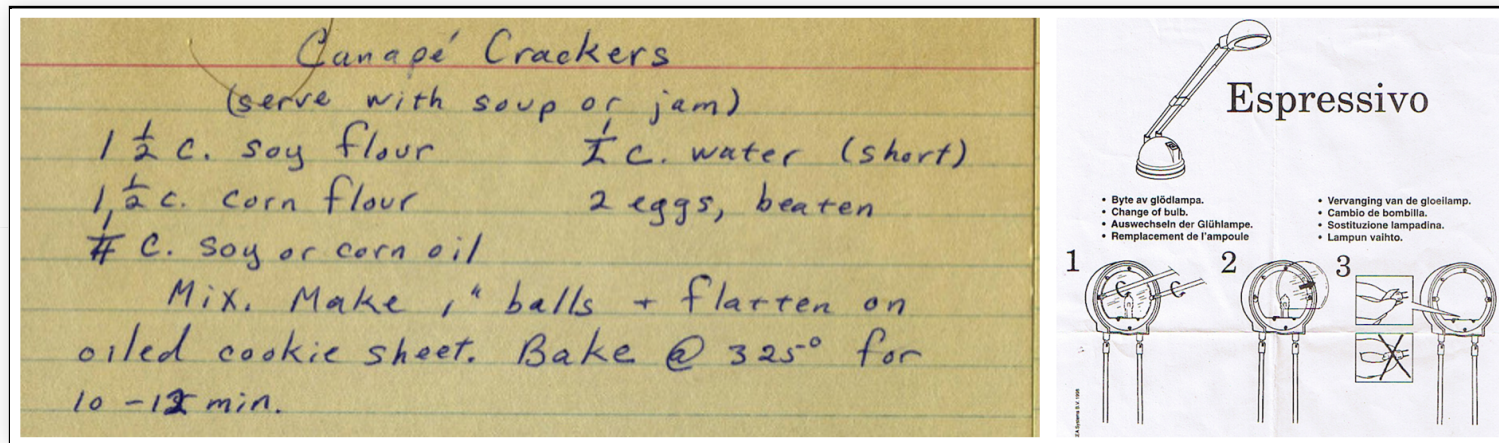 Canapé Crackers
(serve with soup or jam)
1 ½ c. soy flour
1 ½ c. corn flour
¼ C. soy or corn oil
c. water (short)
2 eggs, beaten
Mix. Make 1" balls + flatten on
oiled cookie sheet. Bake @ 325° for
10-12 min.
Espressivo
• Byte av glödlampa.
• Change of bulb.
• Auswechseln der Glühlampe.
• Remplacement de l'ampoule
• Vervanging van de gloeilamp.
• Cambio de bombilla.
• Sostituzione lampadina.
• Lampun vaihto.
1
2
3